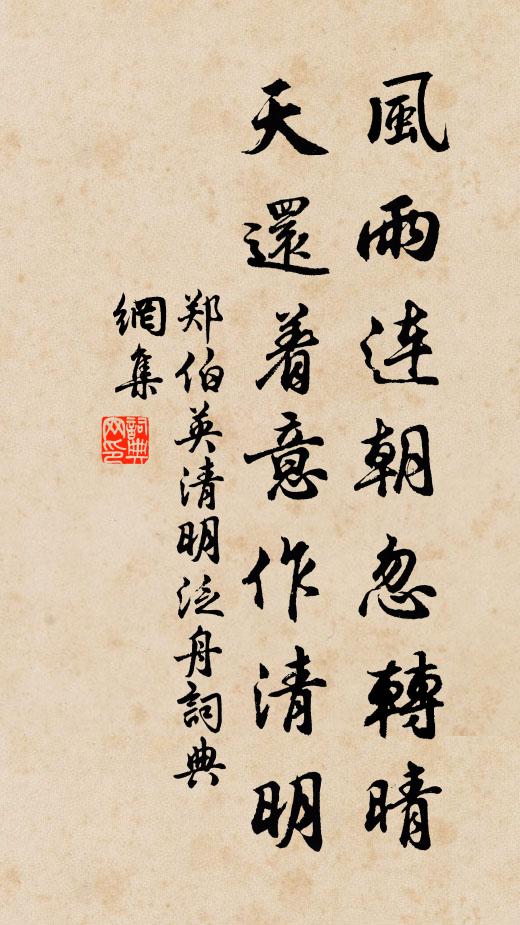 風雨连朝忽轉晴
天還着意作清明
郑伯英清明泛舟詞典
網集
詞典
网印